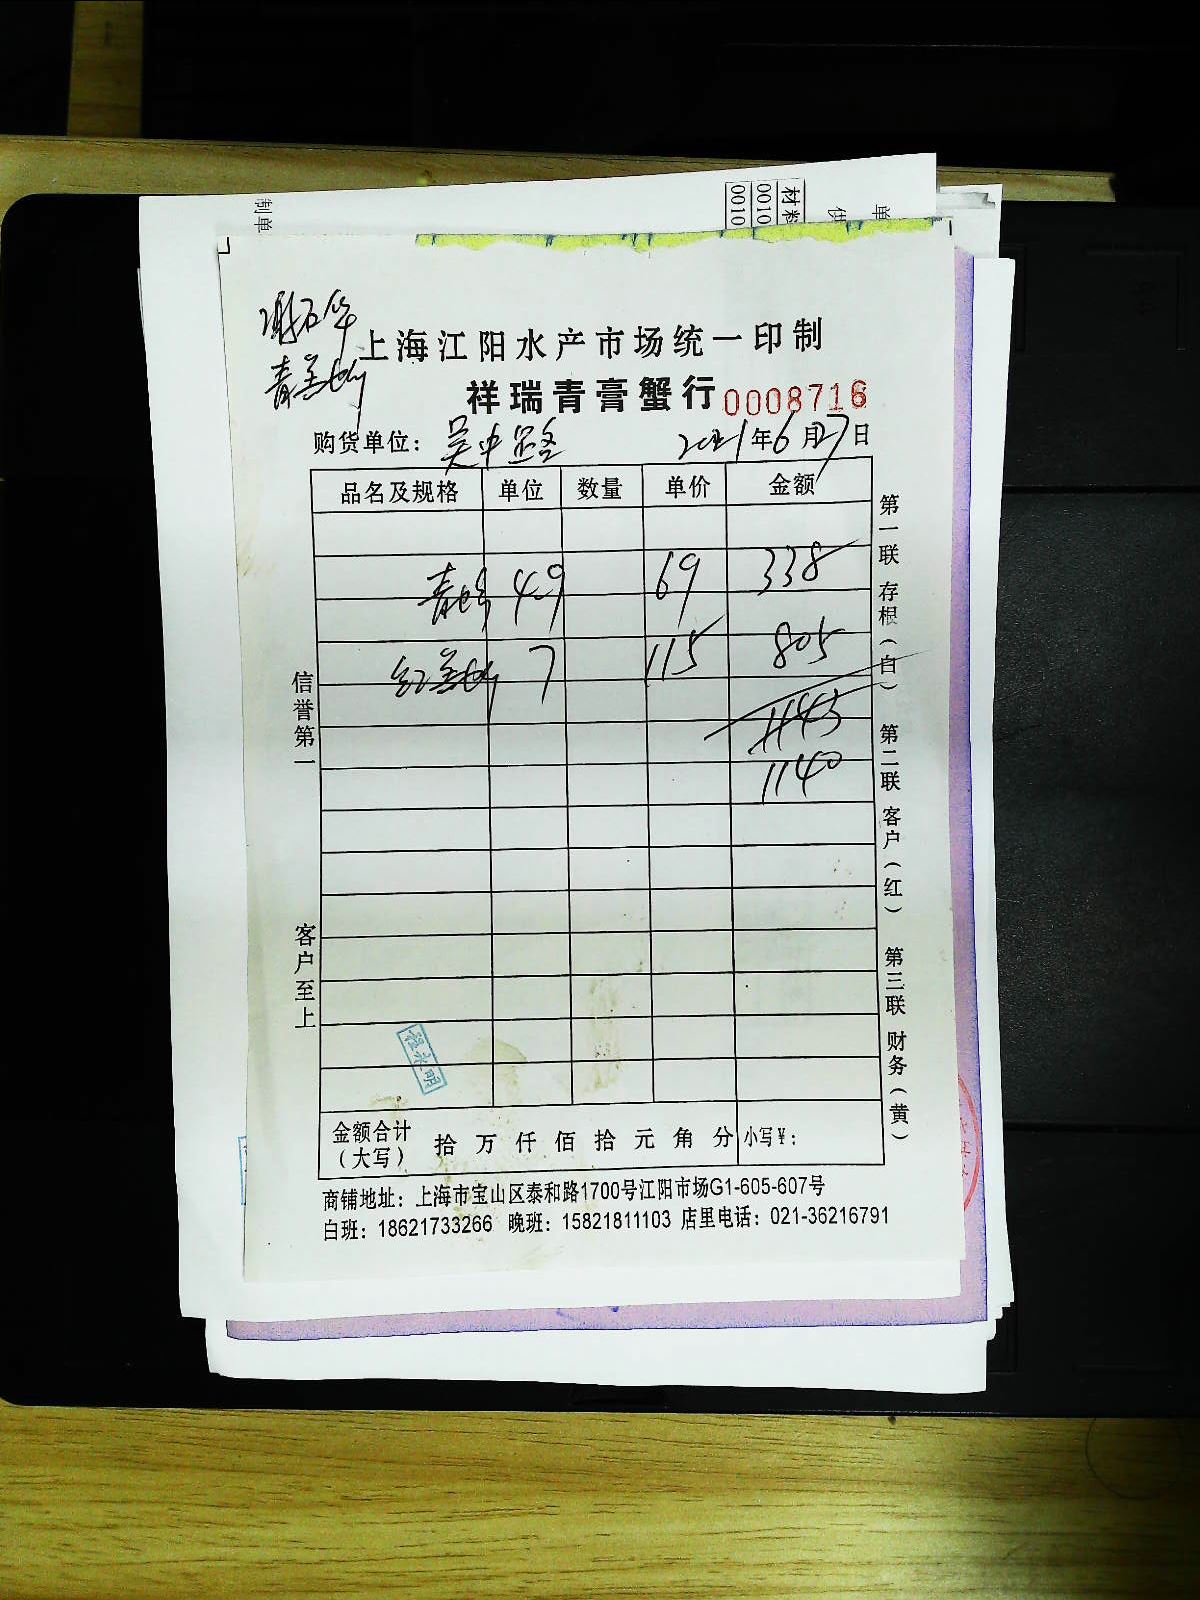 制单
材料
0010
0010
单
上海江阳水产市场统一印制
祥瑞青膏蟹行 0008716
购货单位: 吴中路 2021年6月27日
品名及规格 单位 数量 单价 金额
青 4.9 69 338
红膏 7 115 805
1143
1140
信誉第一 客户至上
第一联 存根(白) 第二联 客户(红) 第三联 财务(黄)
程永明
金额合计(大写) 拾 万 仟 佰 拾 元 角 分 小写¥:
商铺地址: 上海市宝山区泰和路1700号江阳市场G1-605-607号
白班: 18621733266 晚班: 15821811103 店里电话: 021-36216791